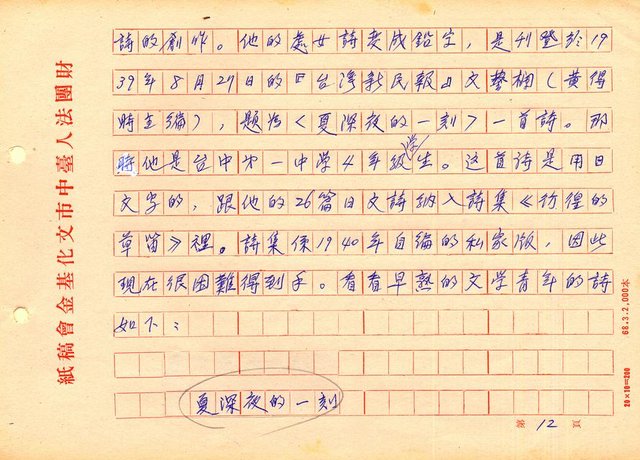 詩的創作。他的處女詩變成鉛字，是刊登於19
39年8月27日的『台灣新民報』文藝欄（黃得
時主編），題為＜夏深夜的一刻＞一首詩。那
時他是台中第一中学4年級学生。这首詩是用日
文字的，跟他的26篇日文詩納入詩集《彷徨的
草笛》裡。詩集係1940年自編的私家版，因此
現在很困難得到手。看看早熟的文学青年的詩
如下：
夏深夜的一刻
第12頁
財團法人臺中市文化基金會稿紙
68.3.2,000本
20×10=200